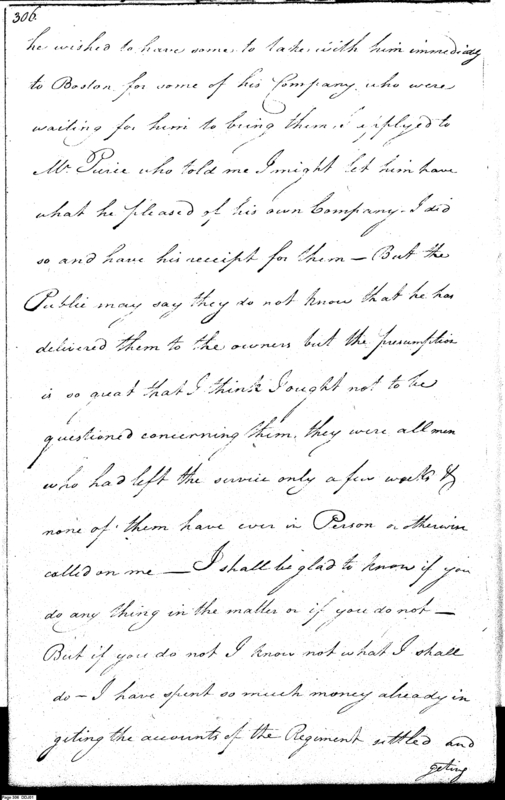 306.
he wished to have some to take with him immediately
to Boston for some of his Company who were
waiting for him to bring them, I applyed to
Mr. Pierce who told me I might let him have
what he pleased of his own Company. I did
so and have his receipt for them — But the
Public may say they do not know that he has
delivered them to the owners but the presumption
is so great that I think I ought not to be
questioned concerning them, they were all men
who had left the service only a few weeks &
none of them have ever in Person or otherwise
called on me — I shall be glad to know if you
do any thing in the matter or if you do not —
But if you do not I know not what I shall
do — I have spent so much money already in
geting the accounts of the Regiment settled and
geting
Page 306